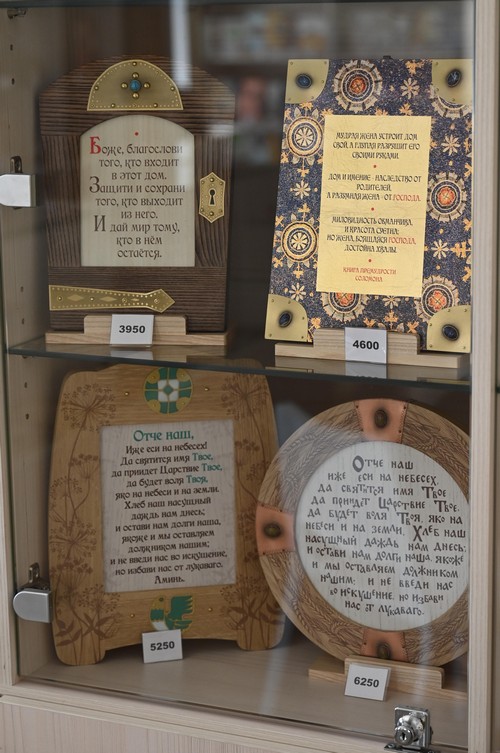 Боже, благослови
того, кто входит
в этот дом.
Защити и сохрани
того, кто выходит
из него.
И дай мир тому,
кто в нём
остаётся.
3950
МУДРАЯ ЖЕНА УСТРОИТ ДОМ
СВОЙ, А ГЛУПАЯ РАЗРУШИТ ЕГО
СВОИМИ РУКАМИ.
ДОМ И ИМЕНИЕ - НАСЛЕДСТВО ОТ
РОДИТЕЛЕЙ,
А РАЗУМНАЯ ЖЕНА - ОТ ГОСПОДА.
МИЛОВИДНОСТЬ ОБМАНЧИВА,
И КРАСОТА СУЕТНА:
НО ЖЕНА, БОЯЩАЯСЯ ГОСПОДА,
ДОСТОЙНА ХВАЛЫ.
КНИГА ПРЕМУДРОСТИ
СОЛОМОНА
4600
Отче наш,
Иже еси на небесех!
Да святится имя Твое,
да приидет Царствие Твое,
да будет воля Твоя,
яко на небеси и на земли.
Хлеб наш насущный
даждь нам днесь;
и остави нам долги наша,
якоже и мы оставляем
должником нашим;
и не введи нас во искушение,
но избави нас от лукаваго.
Аминь.
5250
Отче наш
иже еси на небесех,
да святится имя Твое
да приидет Царствие Твое,
да будет воля Твоя, яко на
небеси и на земли, Хлеб наш
насущный даждь нам днесь;
и остави нам долги наша, якоже
и мы оставляем должником
нашим; и не введи нас
во искушение, но избави
нас от лукаваго.
6250